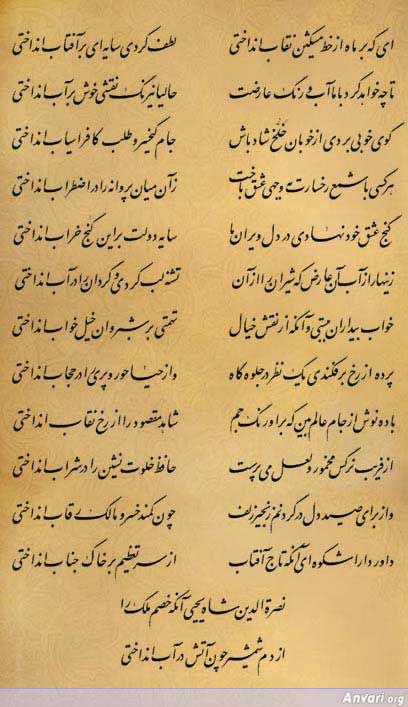 ای که بر ماه از خط مشکین نقاب انداختی لطف کردی سایه ای بر آفتاب انداختی
تا چه خواهد کرد با ما آب و رنگ عارضت حالیا نیرنگ نقشی خوش بر آب انداختی
گوی خوبی بردی از خوبان خلخ شاد باش جام کیخسرو طلب کافراسیاب انداختی
هر کسی با شمع رخسارت به وجهی عشق باخت زآن میان پروانه را در اضطراب انداختی
گنج عشق خود نهادی در دل ویران ما سایه دولت بر این کنج خراب انداختی
زینهار از آب آن عارض که شیران را از آن تشنه لب کردی و گردان را در آب انداختی
خواب بیداران ببستی وآنگه از نقش خیال تهمتی بر شبروان خیل خواب انداختی
پرده از رخ برفکندی یک نظر در جلوه گاه و از حیا حور و پری را در حجاب انداختی
باده نوش از جام عالم بین که بر اورنگ جم شاهد مقصود را از رخ نقاب انداختی
از فریب نرگس مخمور و لعل می پرست حافظ خلوت نشین را در شراب انداختی
و از برای صید دل در گردنم زنجیر زلف چون کمند خسرو مالک رقاب انداختی
داور دارا شکوه ای آنکه تاج آفتاب از سر تعظیم بر خاک جناب انداختی
نصرة الدین شاه یحیی آنکه خصم ملک را
از دم شمشیر چون آتش در آب انداختی
Anvari.org